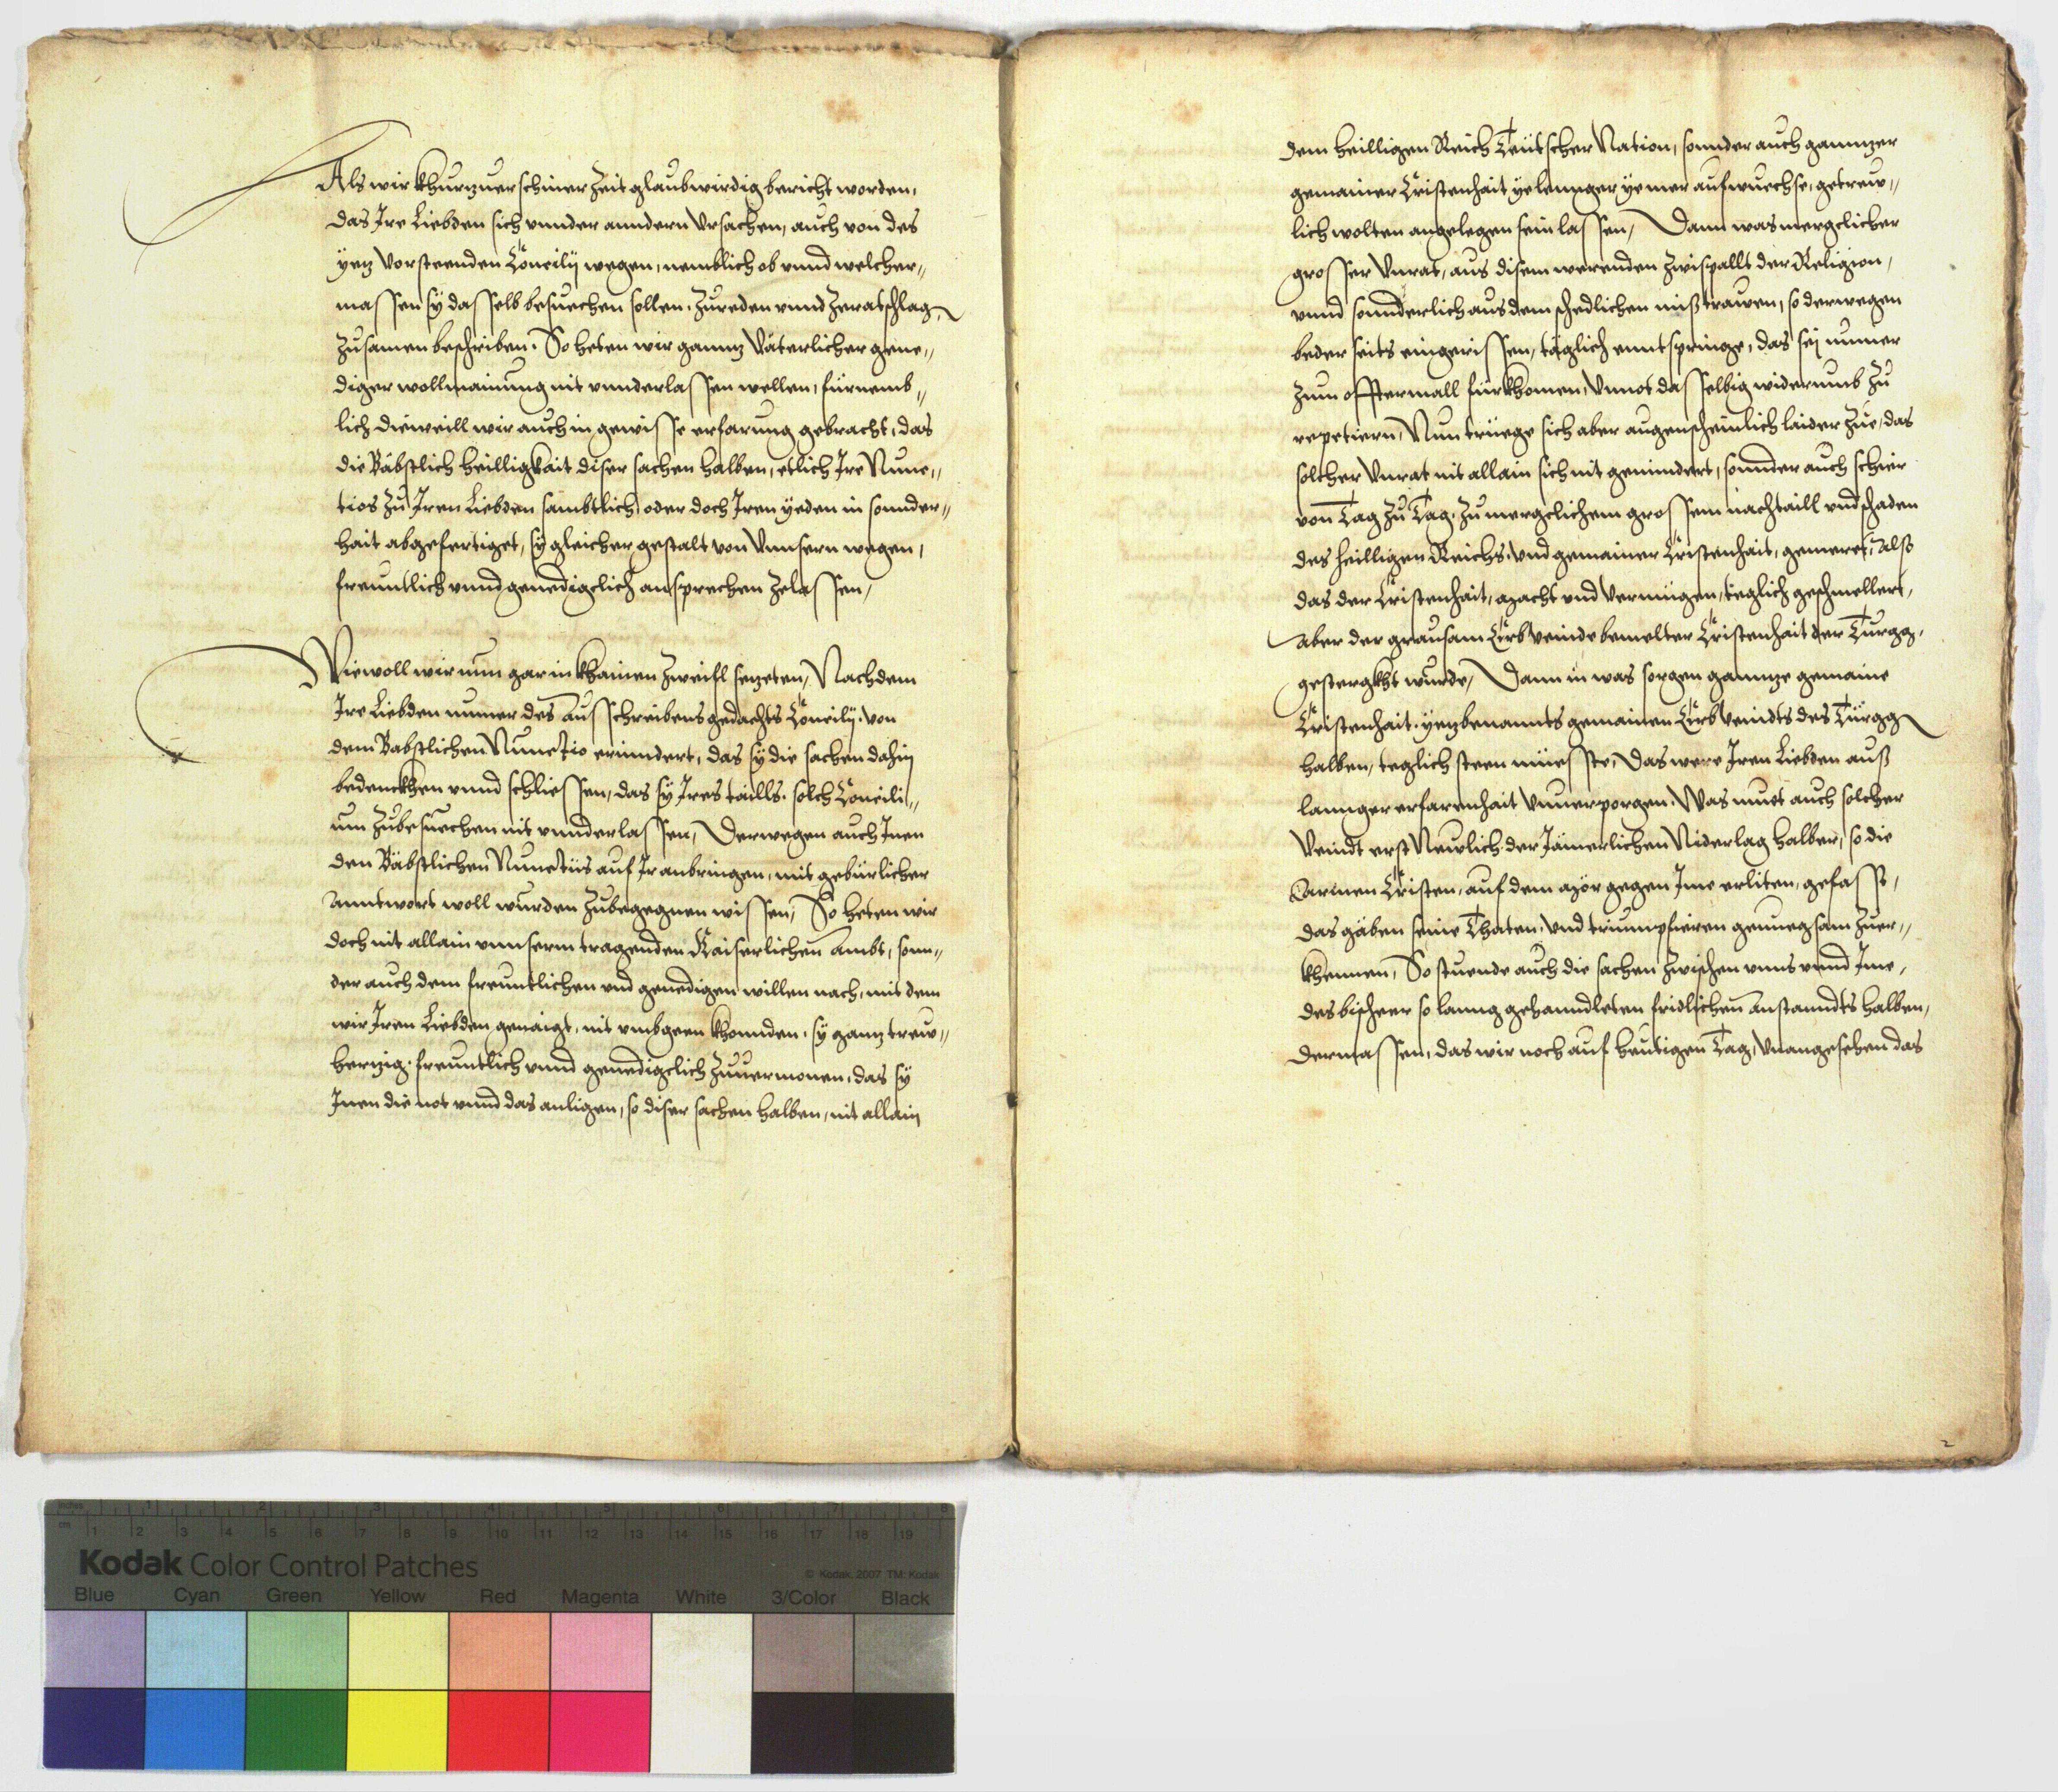 Als wir khurzuerschiner Zeit glaubwirdig bericht worden,
das Ire Liebden sich vnnder anndern Vrsachen, auch von des
yetz Vorsteenden Concilij wegen, nemblich ob vnnd welcher„
massen sy dasselb besuechen sollen, Zureden vnnd Zeratschlag„
Zusamen beschriben. So heten wir gannz Väterlicher gene„
diger wollmainung nit vnnderlassen wellen, fürnemb„
lich dieweill wir auch in gewisse erfarung gebracht, das
die Bäbstlich heilligkait diser sachen halben, etlich Ire Nunc„
tios Zu Iren Liebden sambtlich oder doch Iren yeden in sonnder„
hait abgefertiget, sy gleicher gestalt von Vnnsern wegen,
freuntlich vnnd genedigclich ansprechen Zelassen,
Wiewoll wir nun gar in khainen Zweifl setzeten, Nachdem
Ire Liebden numer des Ausschreibens gedachts Concilij, von
dem Babstlichen Nunctio erinndert, das sy die sachen dahin
bedenckhen vnnd schliessen, das sy Ires taills, solch Concili„
um Zubesuechen nit vnnderlassen, Derwegen auch Inen
den Bäbstlichen Nunctiis auf Ir anbringen, mit gebürlicher
Anntwort woll wurden Zubegegnen wissen, So heten wir
doch nit allain vnnserm tragenden Kaiserlichen Ambt, sonn„
der auch dem freuntlichen vnd genedigen willen nach, mit dem
wir Iren Liebden genaigt, nit vmbgeen khonnden, sy ganz trew„
herzig, freuntlich vnnd genedigclich Zuuermonen, das sy
Inen die not vnnd das anligen, so diser sachen halben, nit allain
dem heilligen Reich Teütscher Nation, sonnder auch gannzer
gemainer Cristenhait ye lennger ye mer aufwuechse, getrew„
lich wolten angelegen sein lassen, Dann was mergclicher
grosser Vnrat, aus disem werenden Zwispallt der Religion,
vnnd sonnderlich aus dem schedlichen misstrawen, so derwegen
beder seits eingerissen, täglich enntspringe, das sej numer
Zum offtermall fürkhomen, Vnnot dasselbig widerumb Zu
repetiern, Nun trüege sich aber augenscheinlich laider Zue, das
solcher Vnrat nit allain sich nit gemindert, sonnder auch schier
von Tag Zu Tag, Zu mergclichem grossem nachtaill vnd schaden
des heilligen Reichs, vnd gemainer Cristenhait, gemeret, Alss
das der Cristenhait, macht vnd Vermügen, teglich geschmellert,
Aber der grausam Erbveinde bemelter Cristenhait der Türgg,
gesterckht wurde, Dann in was sorgen gannze gemaine
Cristenhait, yetzbenannts gemainen Erbveindts des Türgg
halben, teglich steen müesste, Das were Iren Liebden auss
lannger erfarenhait Vnuerporgen, Was muet auch solcher
Veindt erst Newlich, der Jämerlichen Niderlag halben, so die
Armen Cristen, auf dem Mör gegen Ime erliten, gefasst,
das gäben seine Thaten, vnd triumphieren genuegsam Zuer„
khennen, So stuende auch die sachen Zwischen vnns vnnd Ime,
des bisheer so lanng gehanndleten fridlichen Anstanndts halben,
dermassen, das wir noch auf heutigen Tag, Vnangesehen das
2
Kodak Color Control Patches
© Kodak, 2007 TM: Kodak
Blue Cyan Green Yellow Red Magenta White 3/Color Black